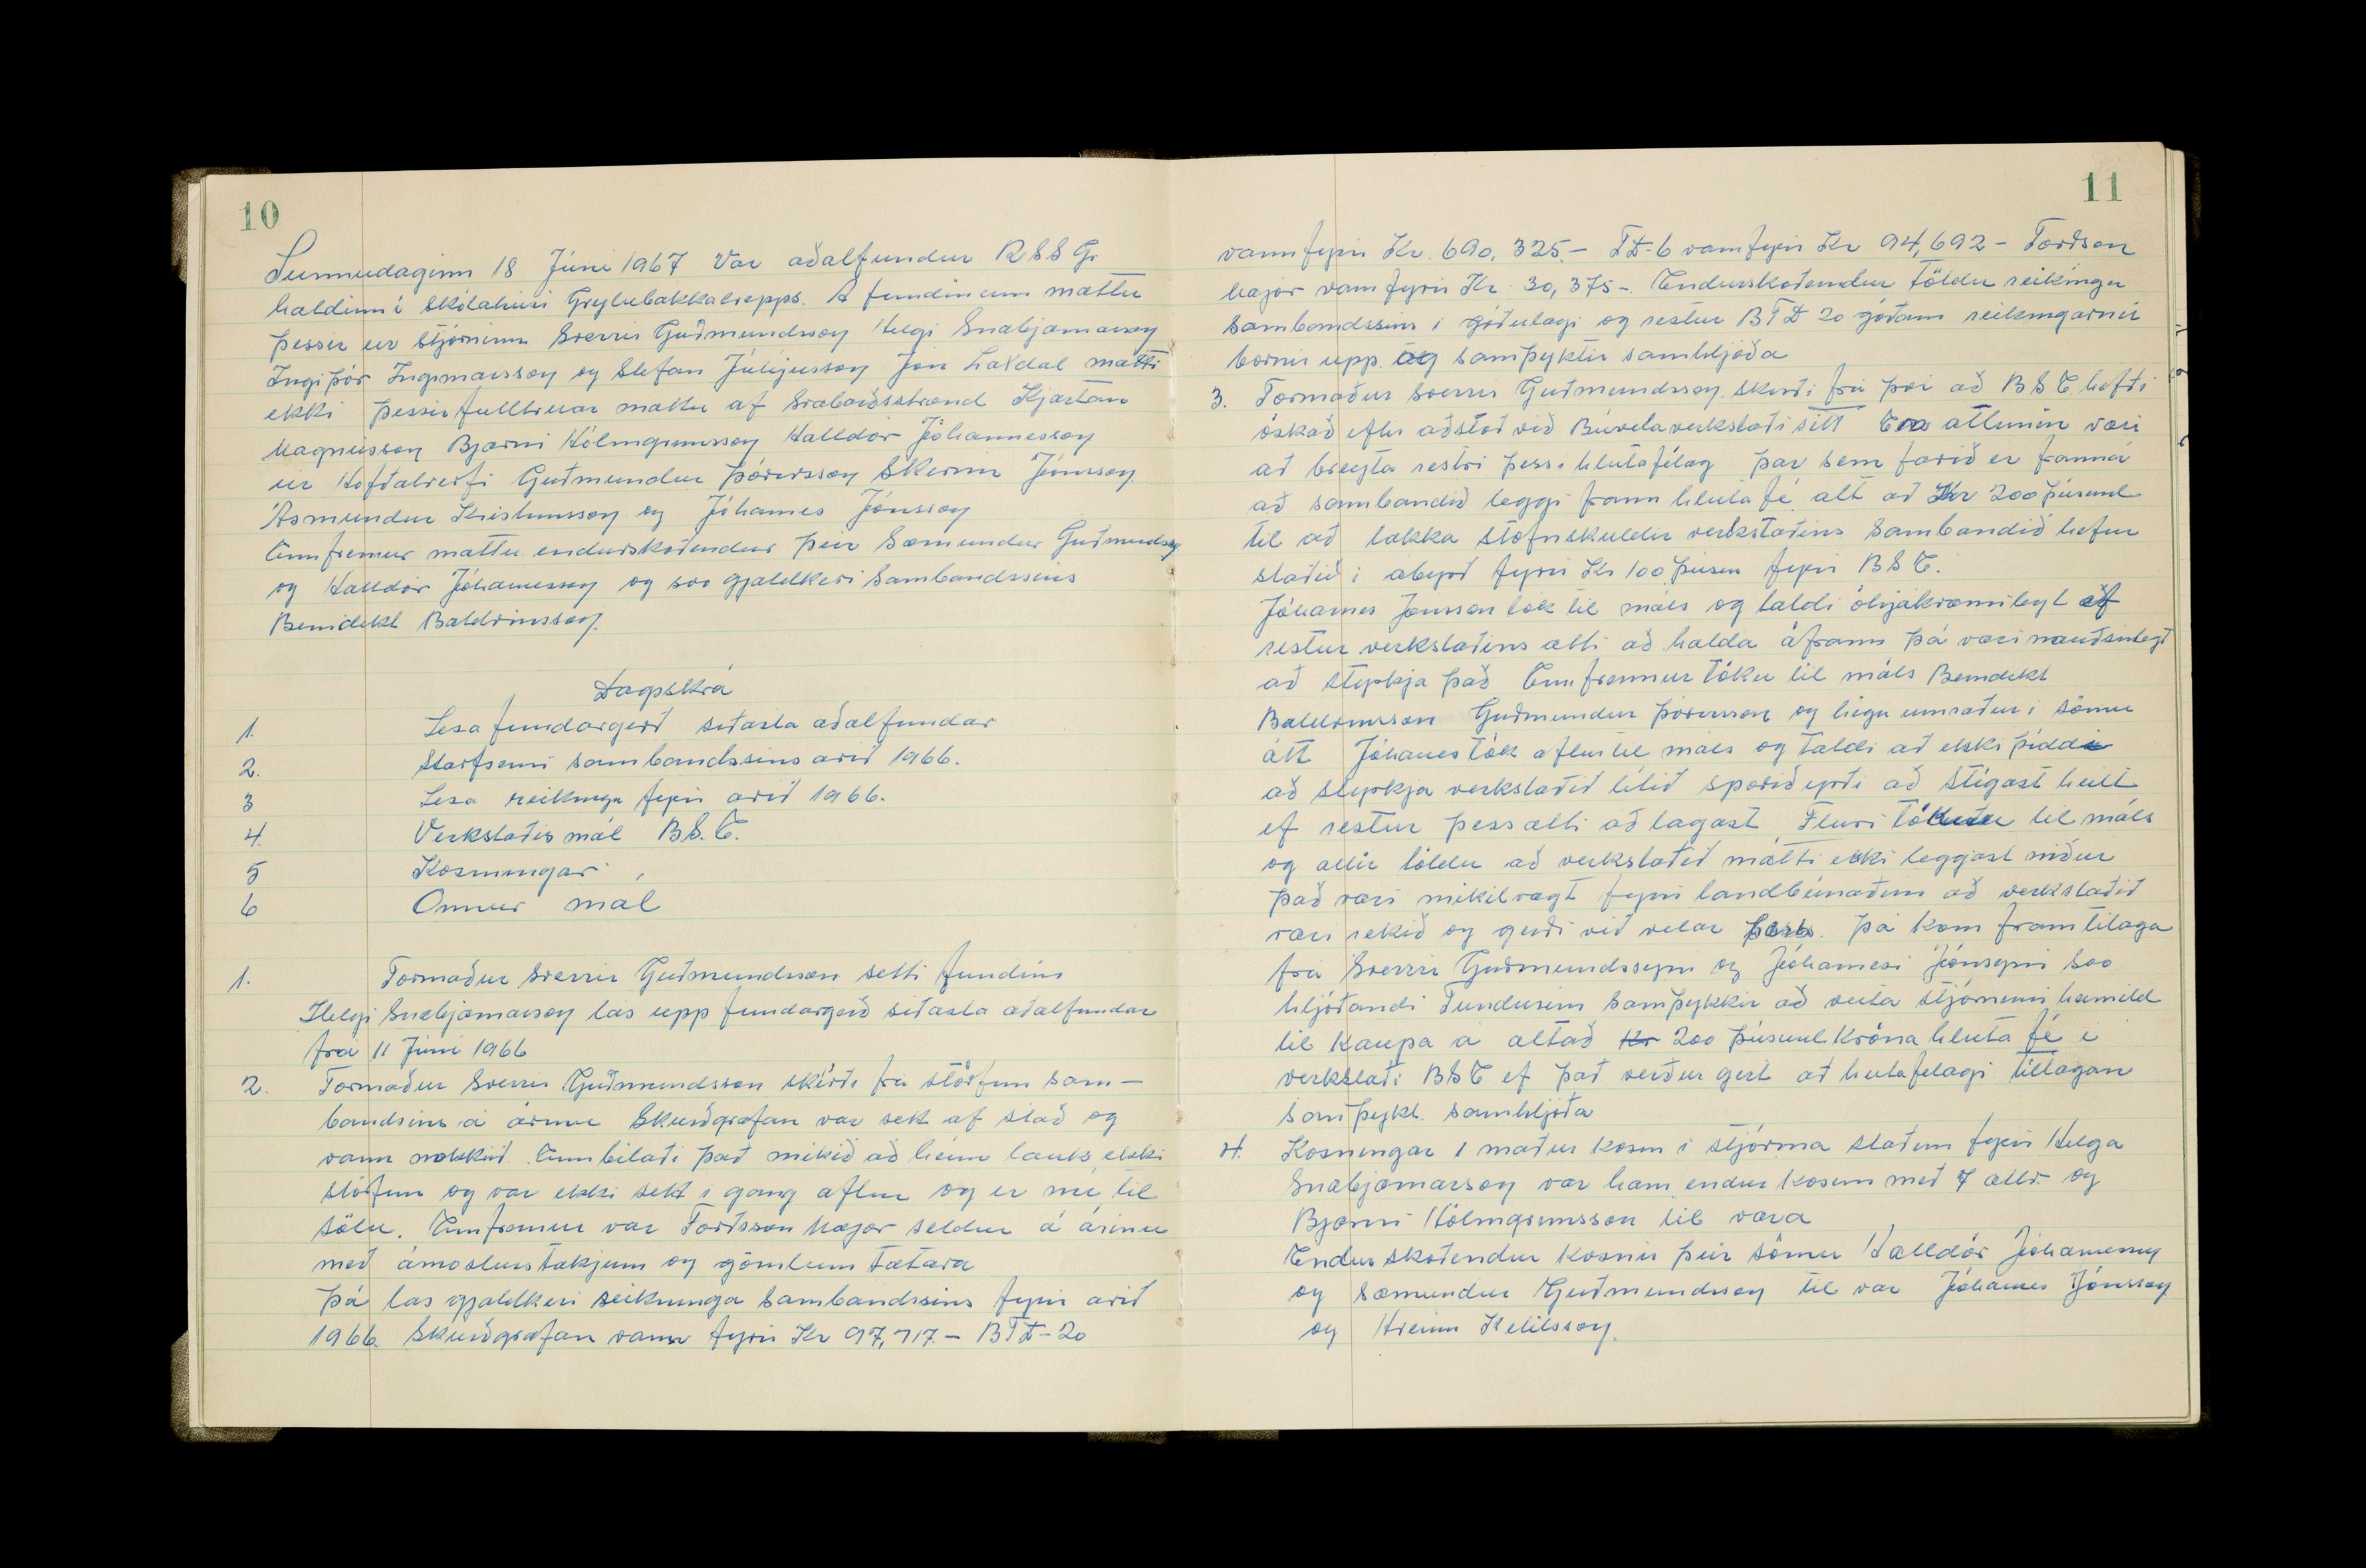 10
Sunnudaginn 18 Júni 1967 Var aðalfundur RSSG.
haldinn í skólahúsi Grýtubakkahrepps. A fundinum mættu
þessir úr stjórninni Sverrir Guðmundsson Helgi Snæbjarnarson
Ingiþór Ingimarsson og Stefan Júlíjusson Jón Laxdal mætti
ekki þessir fulltrúar mættu af Svalbarðsströnd Kjartan
Magnússon Bjarni Hólmgrimsson Halldór Jóhannesson
úr Höfðahverfi Guðmundur Þórirsson Skirnir Jónsson
Ásmundur Kristinsson og Jóhannes Jónsson
Ennfremur mættu endurskoðendur þeir Sæmundur Guðmundss
og Halldór Jóhannesson og svo gjaldkeri Sambandssins
Benidikt Baldvinsson.
Dagskrá
1. Lesa fundargerð siðasta aðalfundar
2. Starfsemi sambandssins arið 1966.
3 Lesa reikninga fyrir arið 1966.
4. Verkstæðis mál B.S.E.
5 Kosningar
6 Onnur mál
1. Formaður Sverrir Guðmundsson setti fundinn
Helgi Snæbjarnarson las upp fundargerð siðasta aðalfundar
frá 11 Júni 1966
2. Formaður Sverrir Guðmundsson skírði frá störfum sam-
bandsins á árinu Skurðgrafan var sett af stað og
vann nokkuð. Enn bilaði það mikið að heinn lauk ekki
störfum og var ekki sett i gang aftur og er nú til
sölu. Ennfremur var Fordsson Major seldur á árinu
með ámoksturstækjum og gömlum tætara
Þá las gjaldkeri reikninga Sambandssins fyrir arið
1966. Skurðgrafan vann fyrir Kr 97,717.- BTD-20
11
vann fyrir Kr. 690,325.- TD-6 vann fyrir Kr 94,692- Fordson
major vann fyrir Kr 30,375-. Endurskoðendur töldu reikinga
sambandssins i góðulagi og restur BTD 20 góðann reikningarnir
bornir upp og samþyktir samhljóða
3. Formaður Sverrir Guðmundsson skirði frá þvi að BSE hefði
óskað eftir aðstoð við Búvelaverkstæði sitt Enn ætlunin væri
að breyta restri þess i hlutafélag þar sem farið er framá
að sambandið leggi fram hlutafé alt að Kr 200 þúsund
til að lækka stofnskuldir verkstæðins Sambandið hefur
staðið i abyrð fyrir Kr 100 þúsun fyrir BSE.
Jóhannes Jónsson tók til máls og taldi óhjákvæmilegt ef
restur verkstæðins ætti að halda áfram þá væri nauðsinlegt
að styrkja það Ennfremur tóku til máls Benidikt
Baldvinsson Guðmundur Þórirsson og hnigu umræður i sömu
átt Jóhanes tók aftur til máls og taldi að ekki þíddi
að styrkja verkstæðið litið sporið yrði að stigast heilt
ef restur þess ætti að lagast, Fleiri tóku til máls
og allir töldu að verkstæðið mætti ekki leggjast niður
það væri mikilvægt fyrir landbúnaðinn að verkstæðið
væri rekið og gerði við velar þess. Þá kom fram tilaga
frá Sverrir Guðmundssyni og Jóhannesi Jónsyni svo
hljóðandi Fundurinn samþykkir að veita stjórninni heimild
til kaupa á altað Kr 200 þúsund króna hluta fé i
verkstæði BSE ef það verður gert að hlutafelagi tillagan
samþykt. samhljóða
4. Kosningar 1 maður kosin i stjórnina staðinn fyrir Helga
Snæbjarnarson var hann endur kosinn með 7 atkv. og
Bjarni Hólmgrimsson til vara
Endurskoðendur kosnir þeir sömu Halldór Jóhannesson
og Sæmundur Guðmundsson til var Jóhannes Jónsson
og Hreinn Ketilsson.